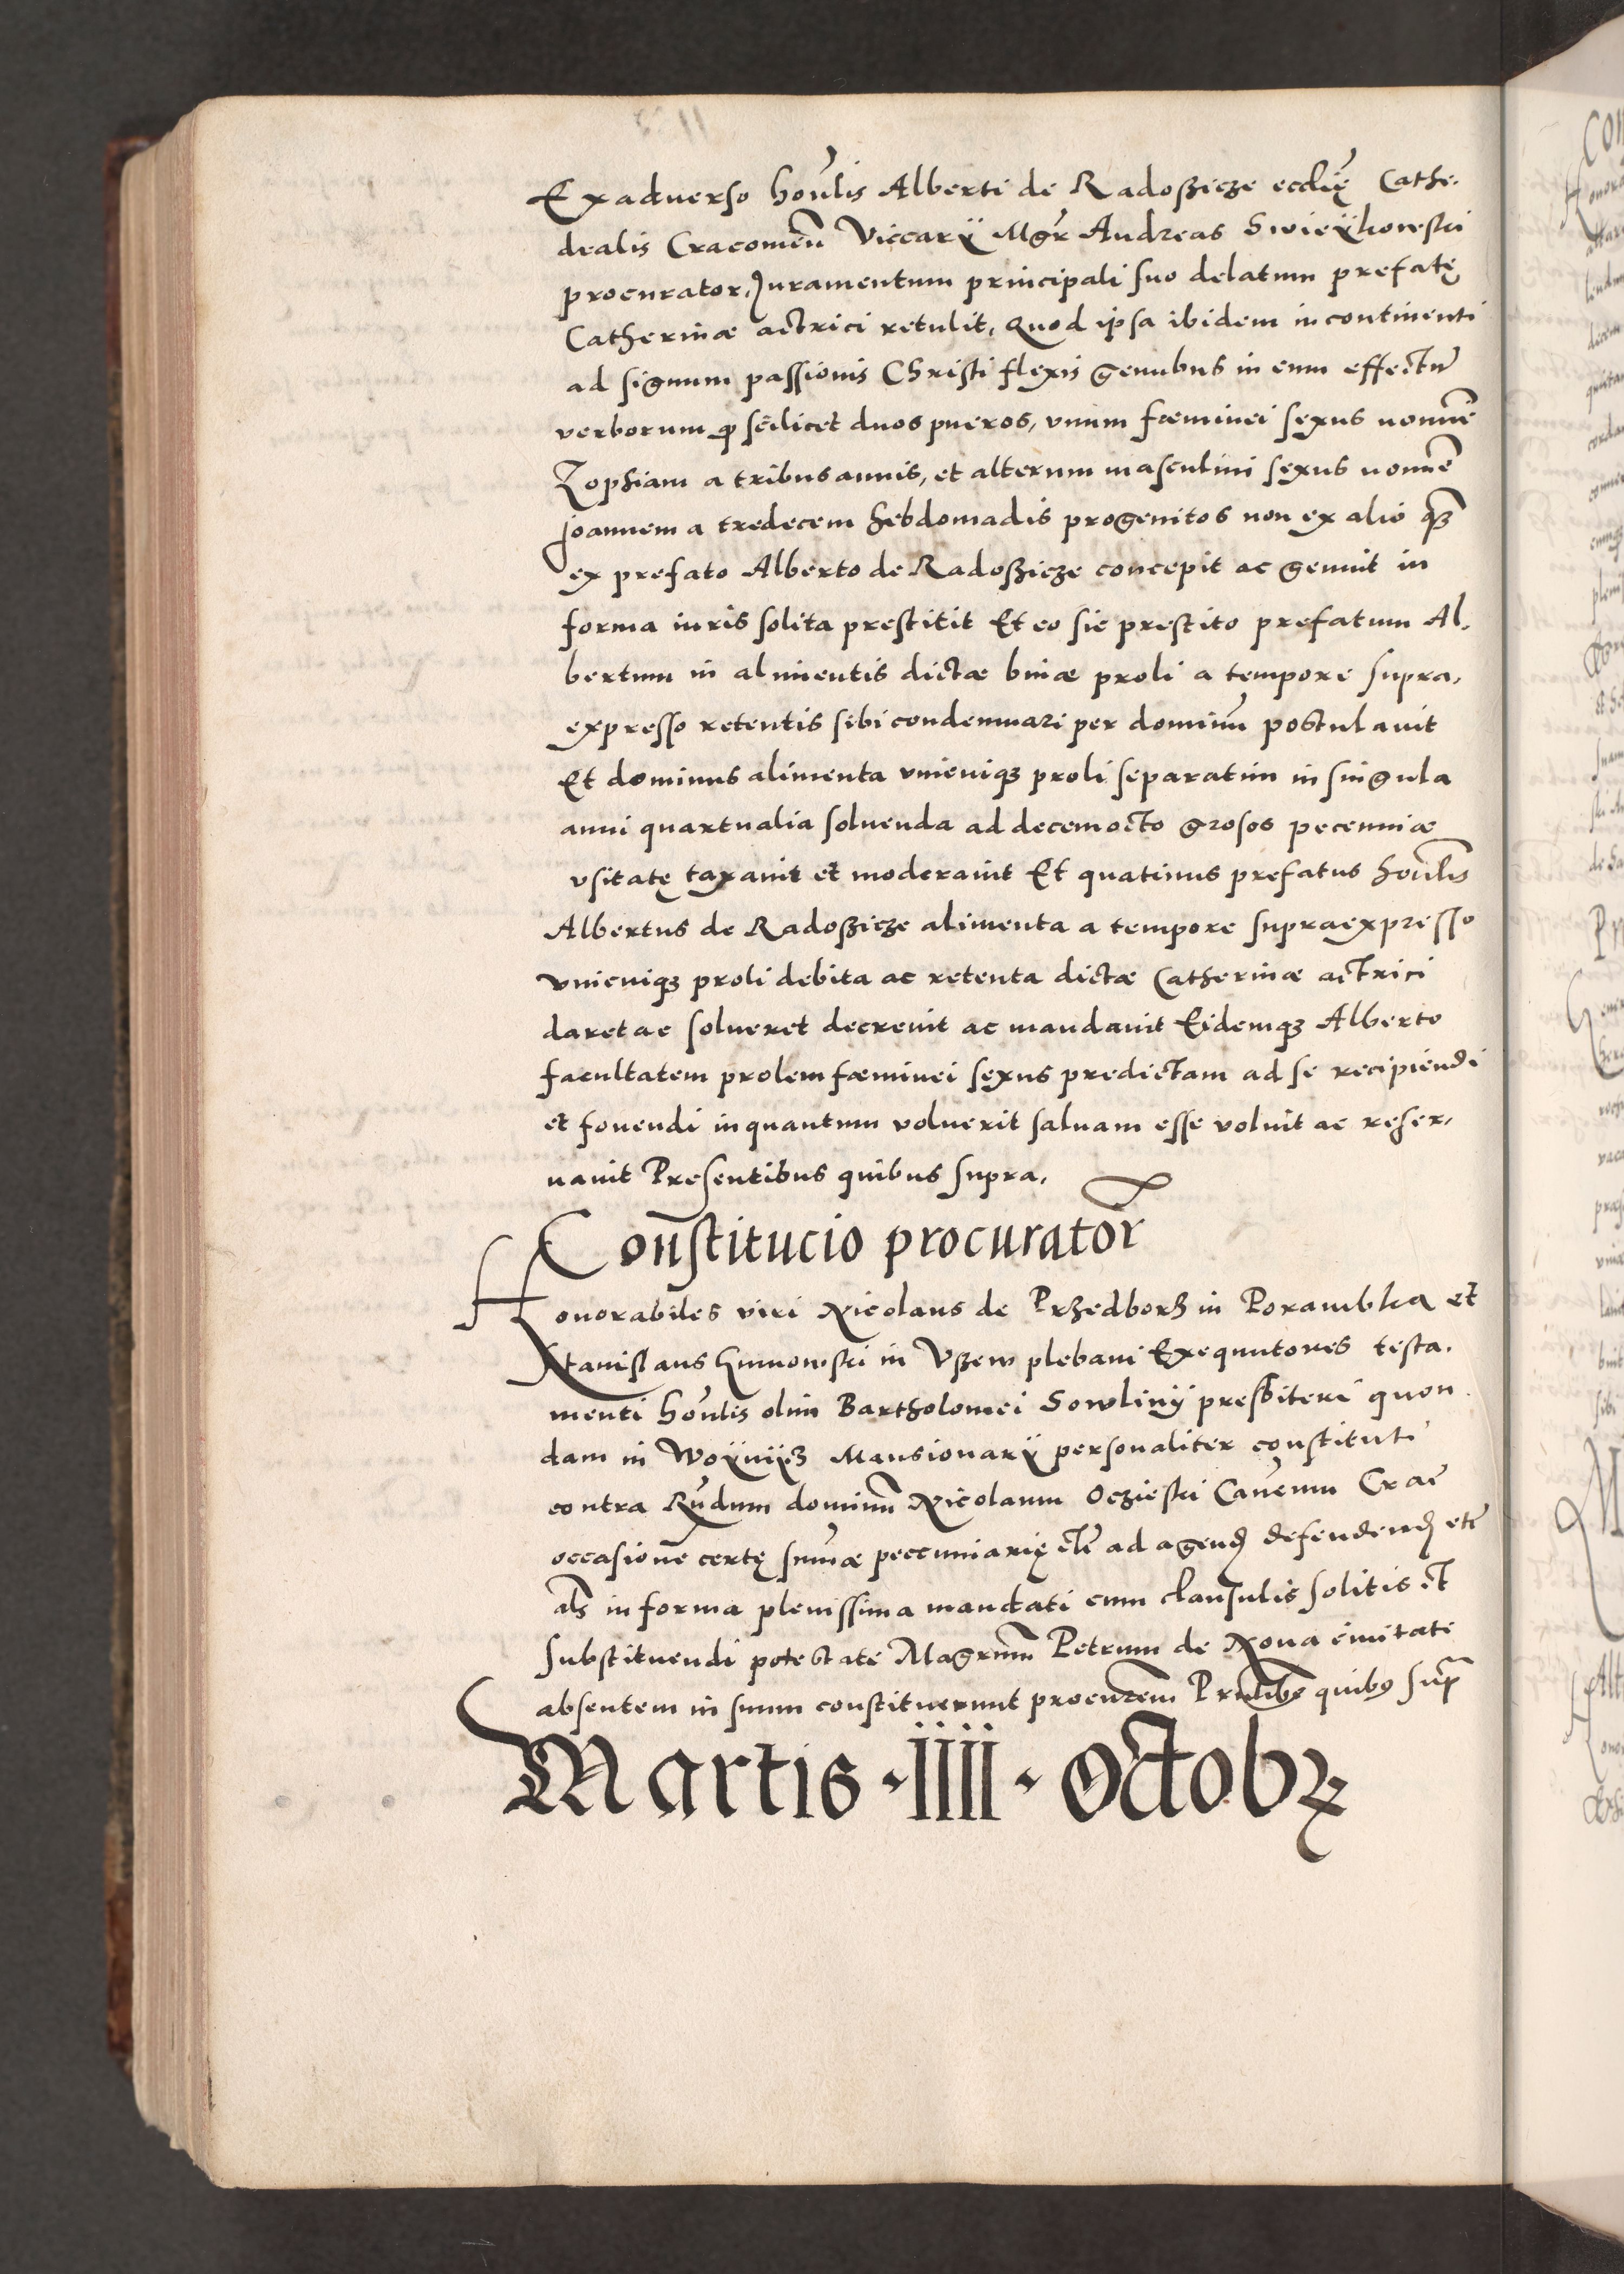 Ex aduerso honlis Alberti de Radoßicze ecclię Cathe,
dralis Cracouien Viccarÿ Mgr Andreas Swieÿkowski
procurator, Juramentum principali suo delatum prefatę
Catherinæ actrici retulit, Quod ipsa ibidem incontinenti
ad signum passionis Christi flexis genubus in eum effectū
verborum ꝙ scilicet duos pueros, vnum fœminei sexus nomīe
Zophiam a tribus annis, et alterum masculini sexus nomīe
Joannem a tredecem hebdomadis progenitos non ex alio qꝫ
ex prefato Alberto de Radoßicze concepit ac genuit in
forma iuris solita prestitit Et eo sic prestito prefatum Al,
bertum in alimentis dictæ binæ proli a tempore supra,
expresso retentis sibi condemnari per dominū postulauit
Et dominus alimenta vnicuiqꝫ proli separatim in singula
anni quartualia soluenda ad decemocto grosos pecenniæ
vsitatę taxauit et moderauit Et quatinus prefatus honlis
Albertus de Radoßicze alimenta a tempore supraexpresso
vnicuiqꝫ proli debita ac retenta dictæ Catherinæ actrici
daret ac solueret decreuit ac mandauit Eidemqꝫ Alberto
facultatem prolem fœminei sexus predictam ad se recipiendi
et fouendi inquantum voluerit saluam esse voluit ac reser,
uauit Presentibus quibus supra,
Constitucio procurator
Honorabiles viri Nicolaus de Przedborz in Porambka et
Stanislaus Gumowski in Vßew plebani Exequutores testa,
menti honlis olim Bartholomei Sowliny presbiteri quon
dam in Woÿnÿcz Mansionarÿ personaliter constituti
contra Rndum dominū Nicolaum Oczieski Canenum Crac
occasione certę summæ peccuniarię etc ad agend defendend etc
als in forma plenissima mandati cum clausulis solitis et
substituendi potestate Magrum Petrum de Noua ciuitate
absentem in suum constituerunt procurem Prntibus quibus sup
Martis · IIII · Octobꝝ